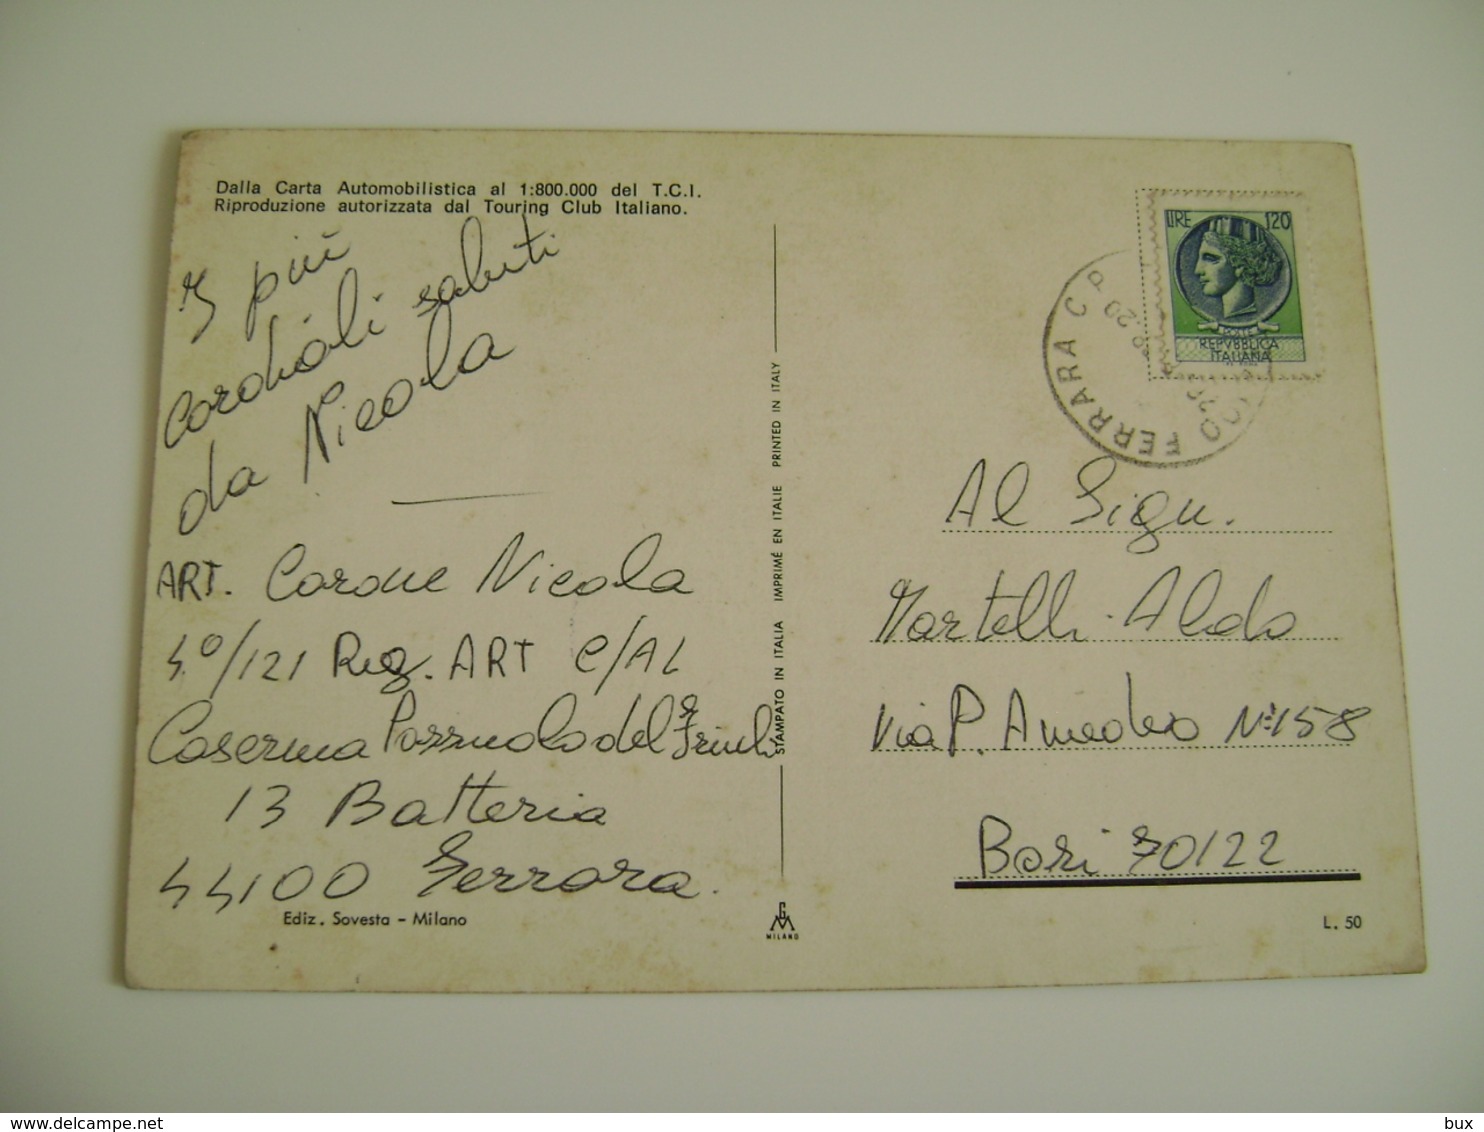 Dalla Carta Automobilistica al 1:800.000 del T.C.I.
Riproduzione autorizzata dal Touring Club Italiano.
I più
cordiali saluti
da Nicola
ART. Carone Nicola
4°/121 Reg. ART C/AL
Caserma Pozzuolo del Friuli
13 Batteria
44100 Ferrara.
Ediz. Sovesta - Milano
STAMPATO IN ITALIA IMPRIMÉ EN ITALIE PRINTED IN ITALY
GM
MILANO
LIRE 120
POSTE
REPVBBLICA
ITALIANA
FERRARA C P
Al Sign.
Martelli Aldo
Via P. Amedeo N° 158
Bari 70122
L. 50
delcampe.net
bux